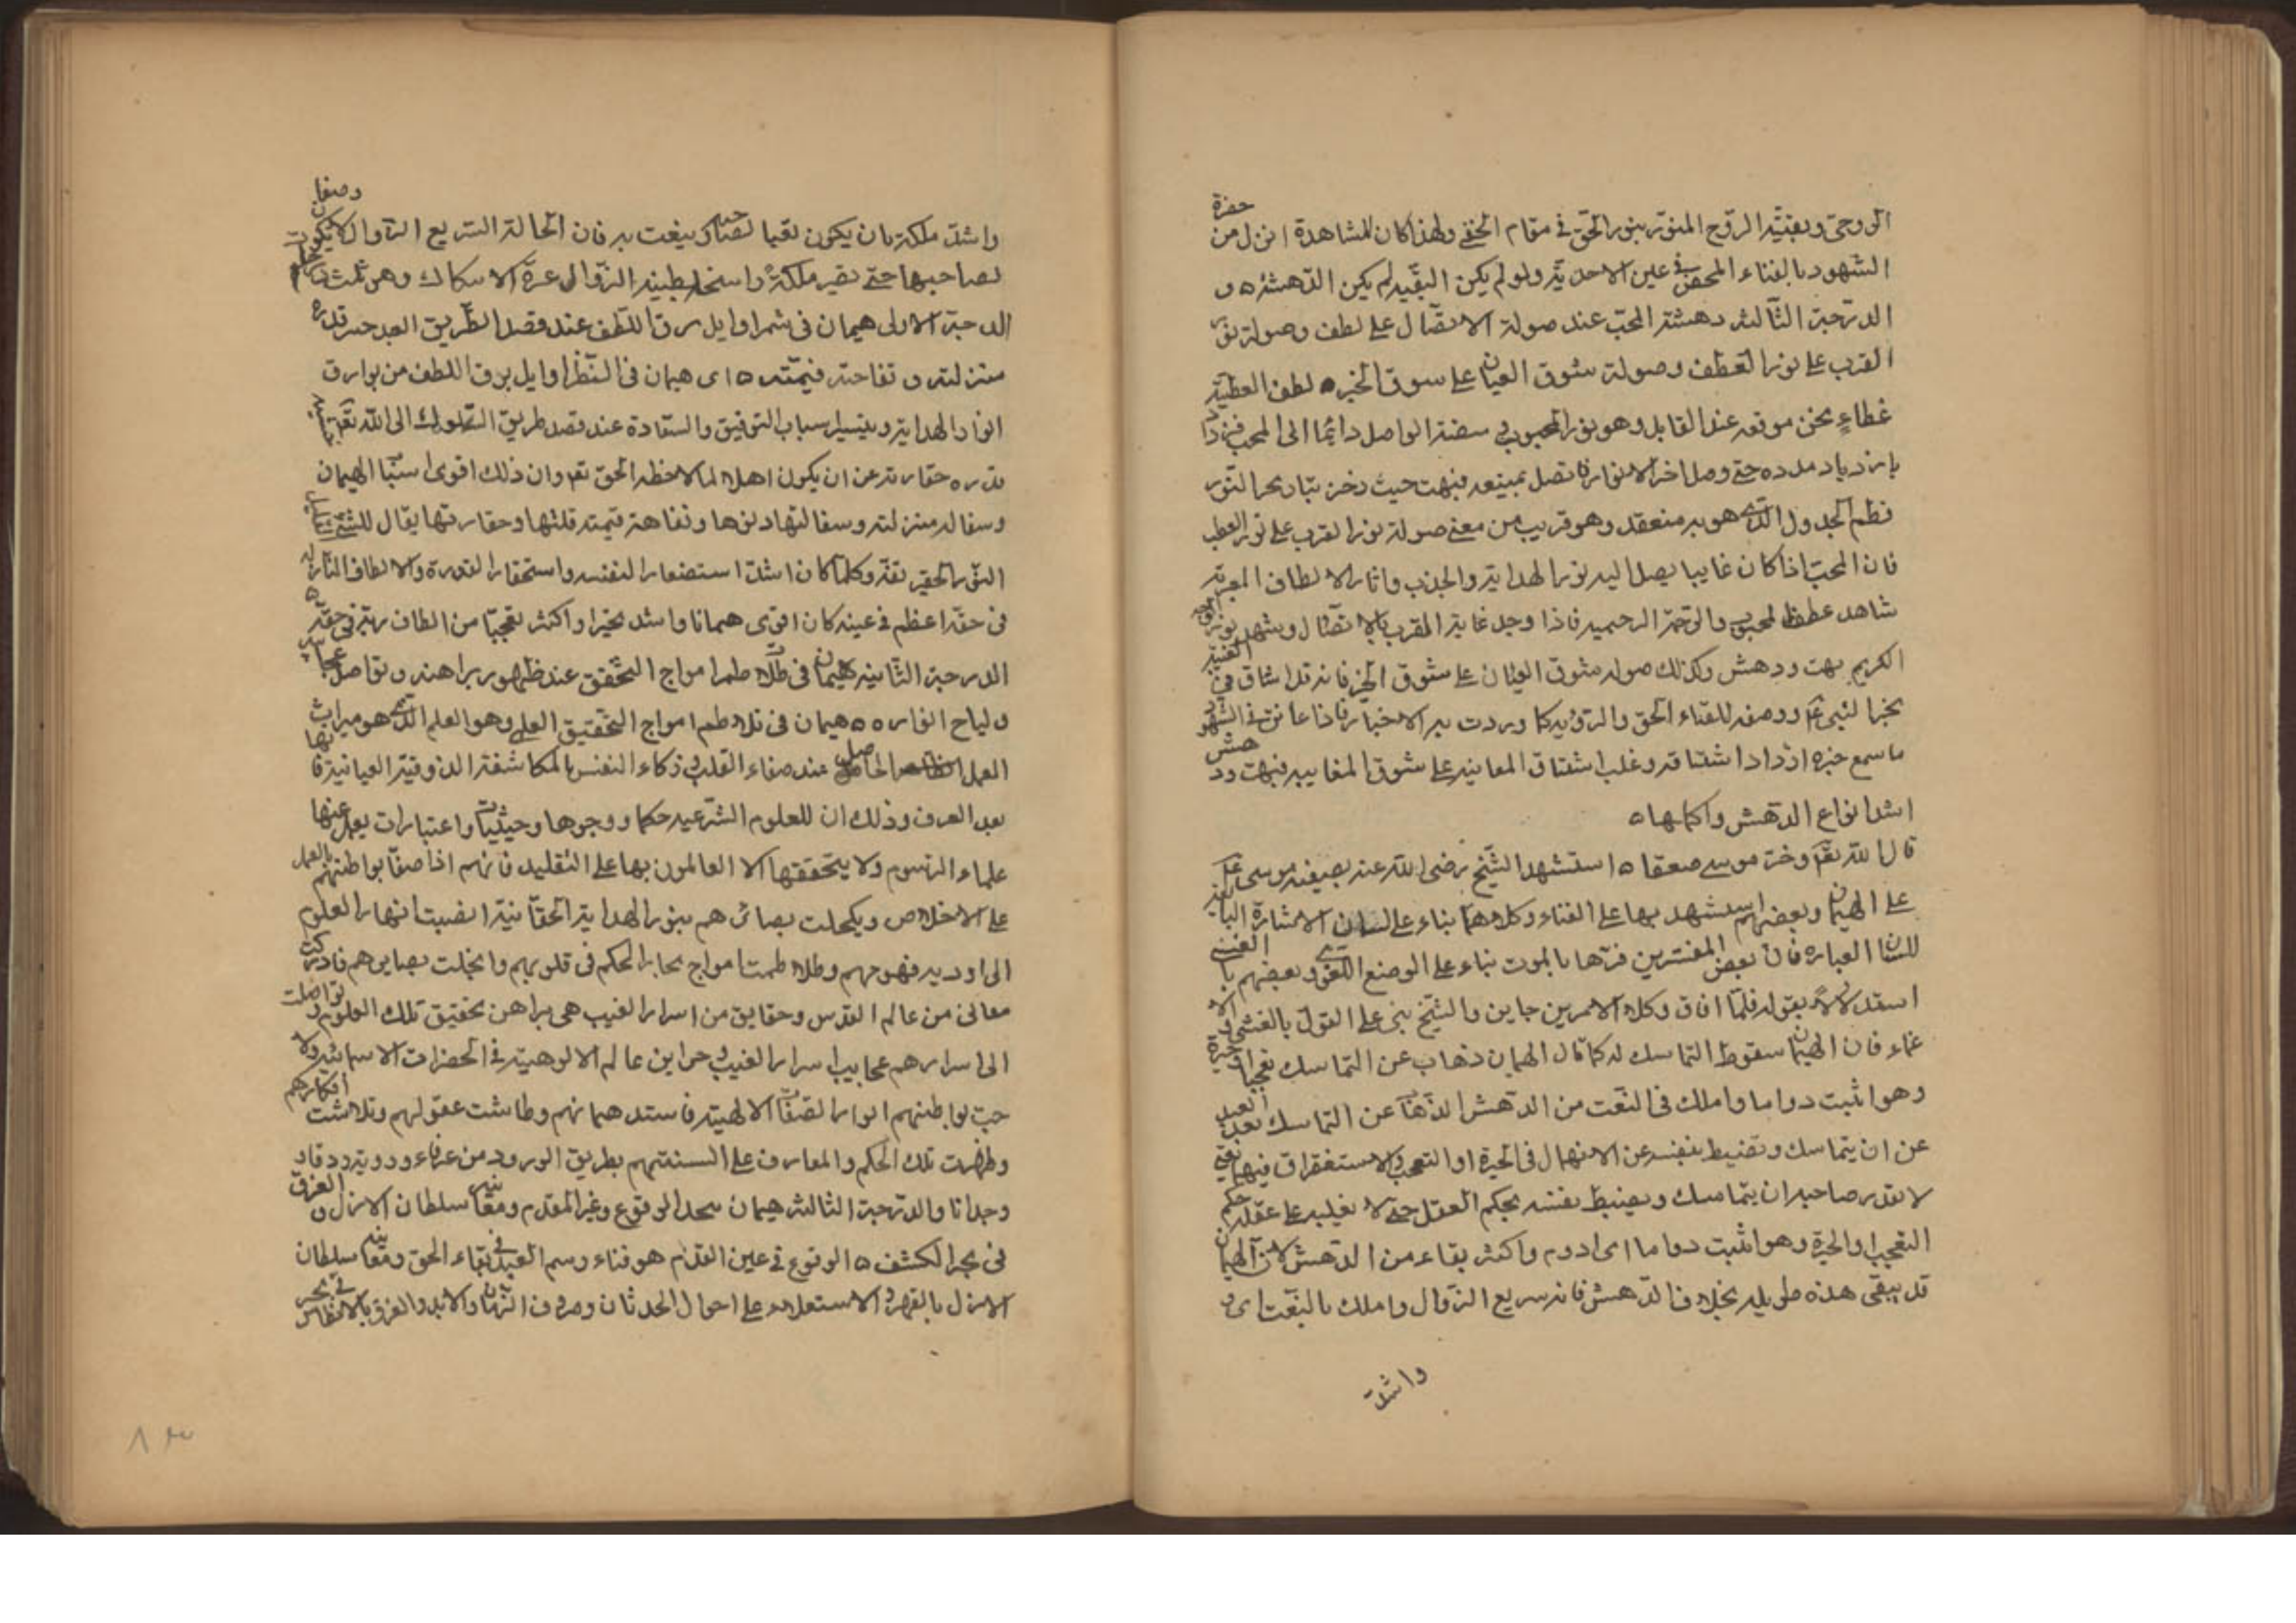 حضرة
الروحى وبقيته الروح المنور بنور الحق فى مقام الخفى ولهذا كان للمشاهدة انزل من
الشهود بالفناء المحض فى عين الاحدية ولو لم يكن البقية لم يكن الدهشة ه و
الدرجة الثالثة دهشة المحب عند صولة الاتصال على لطف وصولة نور
القرب على نور العطف وصولة شوق العيان على سوق الخبر ه لطف العطية
غطاء يحسن موقعه عند القابل وهو نور المحبوب فى صفة الواصل دائما الى المحب فيزداد
بازدياد مدده حتى وصل اخر الانوار فاتصل بمنبعه فبهت حيث دخر تيار بحر النور
فطم الجدول الذى هو به منعقد وهو قريب من معنى صولة نور القرب على نور العطف
فان المحب اذا كان غايبا يصل اليه نور الهداية والجذب واثار الالطاف المقربة
شاهد عطف المحبوب والرحمة الرحيمية فاذا وجد غاية المقرب بالاتصال وشهد نور الوجه
الكريم بهت ودهش وكذلك صولة شوق العيان على شوق الخبر فانه قد اشتاق فى الغيبة
بخبر النبى ع م ووصفه للقاء الحق والرؤية كما وردت به الاخبار فاذا عاين فى الشهود
ما سمع خبره ازداد اشتياقه وغلب اشتياق المعاينة على شوق المغايبة فبهت ودهش
اشد انواع الدهش واكملها ه
قال الله تعا وخر موسى صعقا ه استشهد الشيخ رضى الله عنه بصعقة موسى ع م
على الهيمان وبعضهم استشهد بها على الفناء وكلاهما بناء على لسان الاشارة
للسان العبارة فان بعض المفسرين فسرها بالموت بناء على الوضع اللغوى وبعضهم بالغشى
استدلالا بقوله فلما افاق وكلا الامرين جاين والشيخ بنى على القول بالغشى و
غماء فان الهيمان سقوط التماسك له كما قال الهيمان ذهاب عن التماسك تعجبا او حيرة
وهو اثبت دواما واملك فى النعت من الدهش الذهاب عن التماسك بعد العبد
عن ان يتماسك وتضبط بنفسه عن الانهمال فى الحيرة او التعجب والاستغراق فيها يعنى
لا يقدر صاحبه ان يتماسك ويضبط نفسه بحكم العقل حتى لا يغلبه على عقله حكم
التعجب او الحيرة وهو اثبت دواما اى ادوم واكثر بقاء من الدهش لان الهيمان
قد يبقى هذه طويلة بخلاف الدهش فانه سريع الزوال واملك بالنعت اى و
واشد
واشد ملكة بان يكون نعتا لصاحبه وينعت به فان الحالة السريع الزوال لا يكون وصفا
لصاحبها حتى تصير ملكة راسخة بطيئة الزوال وهو ثلث درجات
الدرجة الاولى هيمان فى شم اوايل برق اللطف عند قصد الطريق قدره
منزلته وتفاهة قيمته ه اى هيمان فى النظر اوايل برق اللطف من بوارق
انوار الهداية وتيسير اسباب التوفيق والسعادة عند قصد طريق السلوك الى الله تعا
قدره حقارته عن ان يكون اهلا لملاحظة الحق تعا وان ذلك اقوى اسباب الهيمان
وسفالة منزلته وسفالتها دنوها وتفاهة قيمته قلتها وحقارتها يقال للشئ
النزر الحقير تفه وكلما كان اشد استصغارا لنفسه واستحقارا لقدره والالطاف النازلة
فى حقه اعظم فى عينه كان اقوى هيمانا واشد تحيرا واكثر تعجبا من الطاف ربه فى حقه ه
الدرجة الثانية هيمان فى تلاطم امواج التحقق عند ظهور براهنه وتواصل عجائبه
ولياح انواره ه ه هيمان فى تلاطم امواج التحقيق العلمى وهو العلم الذى هو ميراث
العمل الحاصل عند صفاء القلب وذكاء النفس بالمكاشفة الذوقية العيانية
بعد العرف وذلك ان للعلوم الشرعية حكما ووجوها وحيثيات واعتبارات يعمل عنها
علماء الرسوم ولا يتحققها الا العالمون بها على التقليد فانهم اذا صفا بواطنهم بالعمل
على الاخلاص ويكحلت بصائرهم بنور الهداية الحقانية انصبت انهار العلوم
الى اودية فهومهم وتلاطمت امواج بحار الحكم فى قلوبهم وانجلت بصايرهم فادركت
معانى من عالم القدس وحقايق من اسرار الغيب هى براهن تحقيق تلك العلوم وتواصلت
الى اسرارهم عجايب اسرار الغيب وخزاين عالم الالوهية فى الحضرات الاسمائية ولا
حت لبواطنهم انوار الصفات الالهية فاستد هيمانهم وطاشت عقولهم وتلاشت افكارهم
وظهرت تلك الحكم والمعارف على السنتهم بطريق الورود من غير روية
وجدانا والدرجة الثالثة هيمان عند الوقوع فى عين القدم ومعاينة سلطان الازل والغرق
فى بحر الكشف ه الوقوع فى عين القدم هو فناء رسم العبد فى بقاء الحق ومعاينة سلطان
الازل بالقهر والاستعلاء على احوال الحدثان وصروف الزمان والابد والغرق فى بحر
٨٣